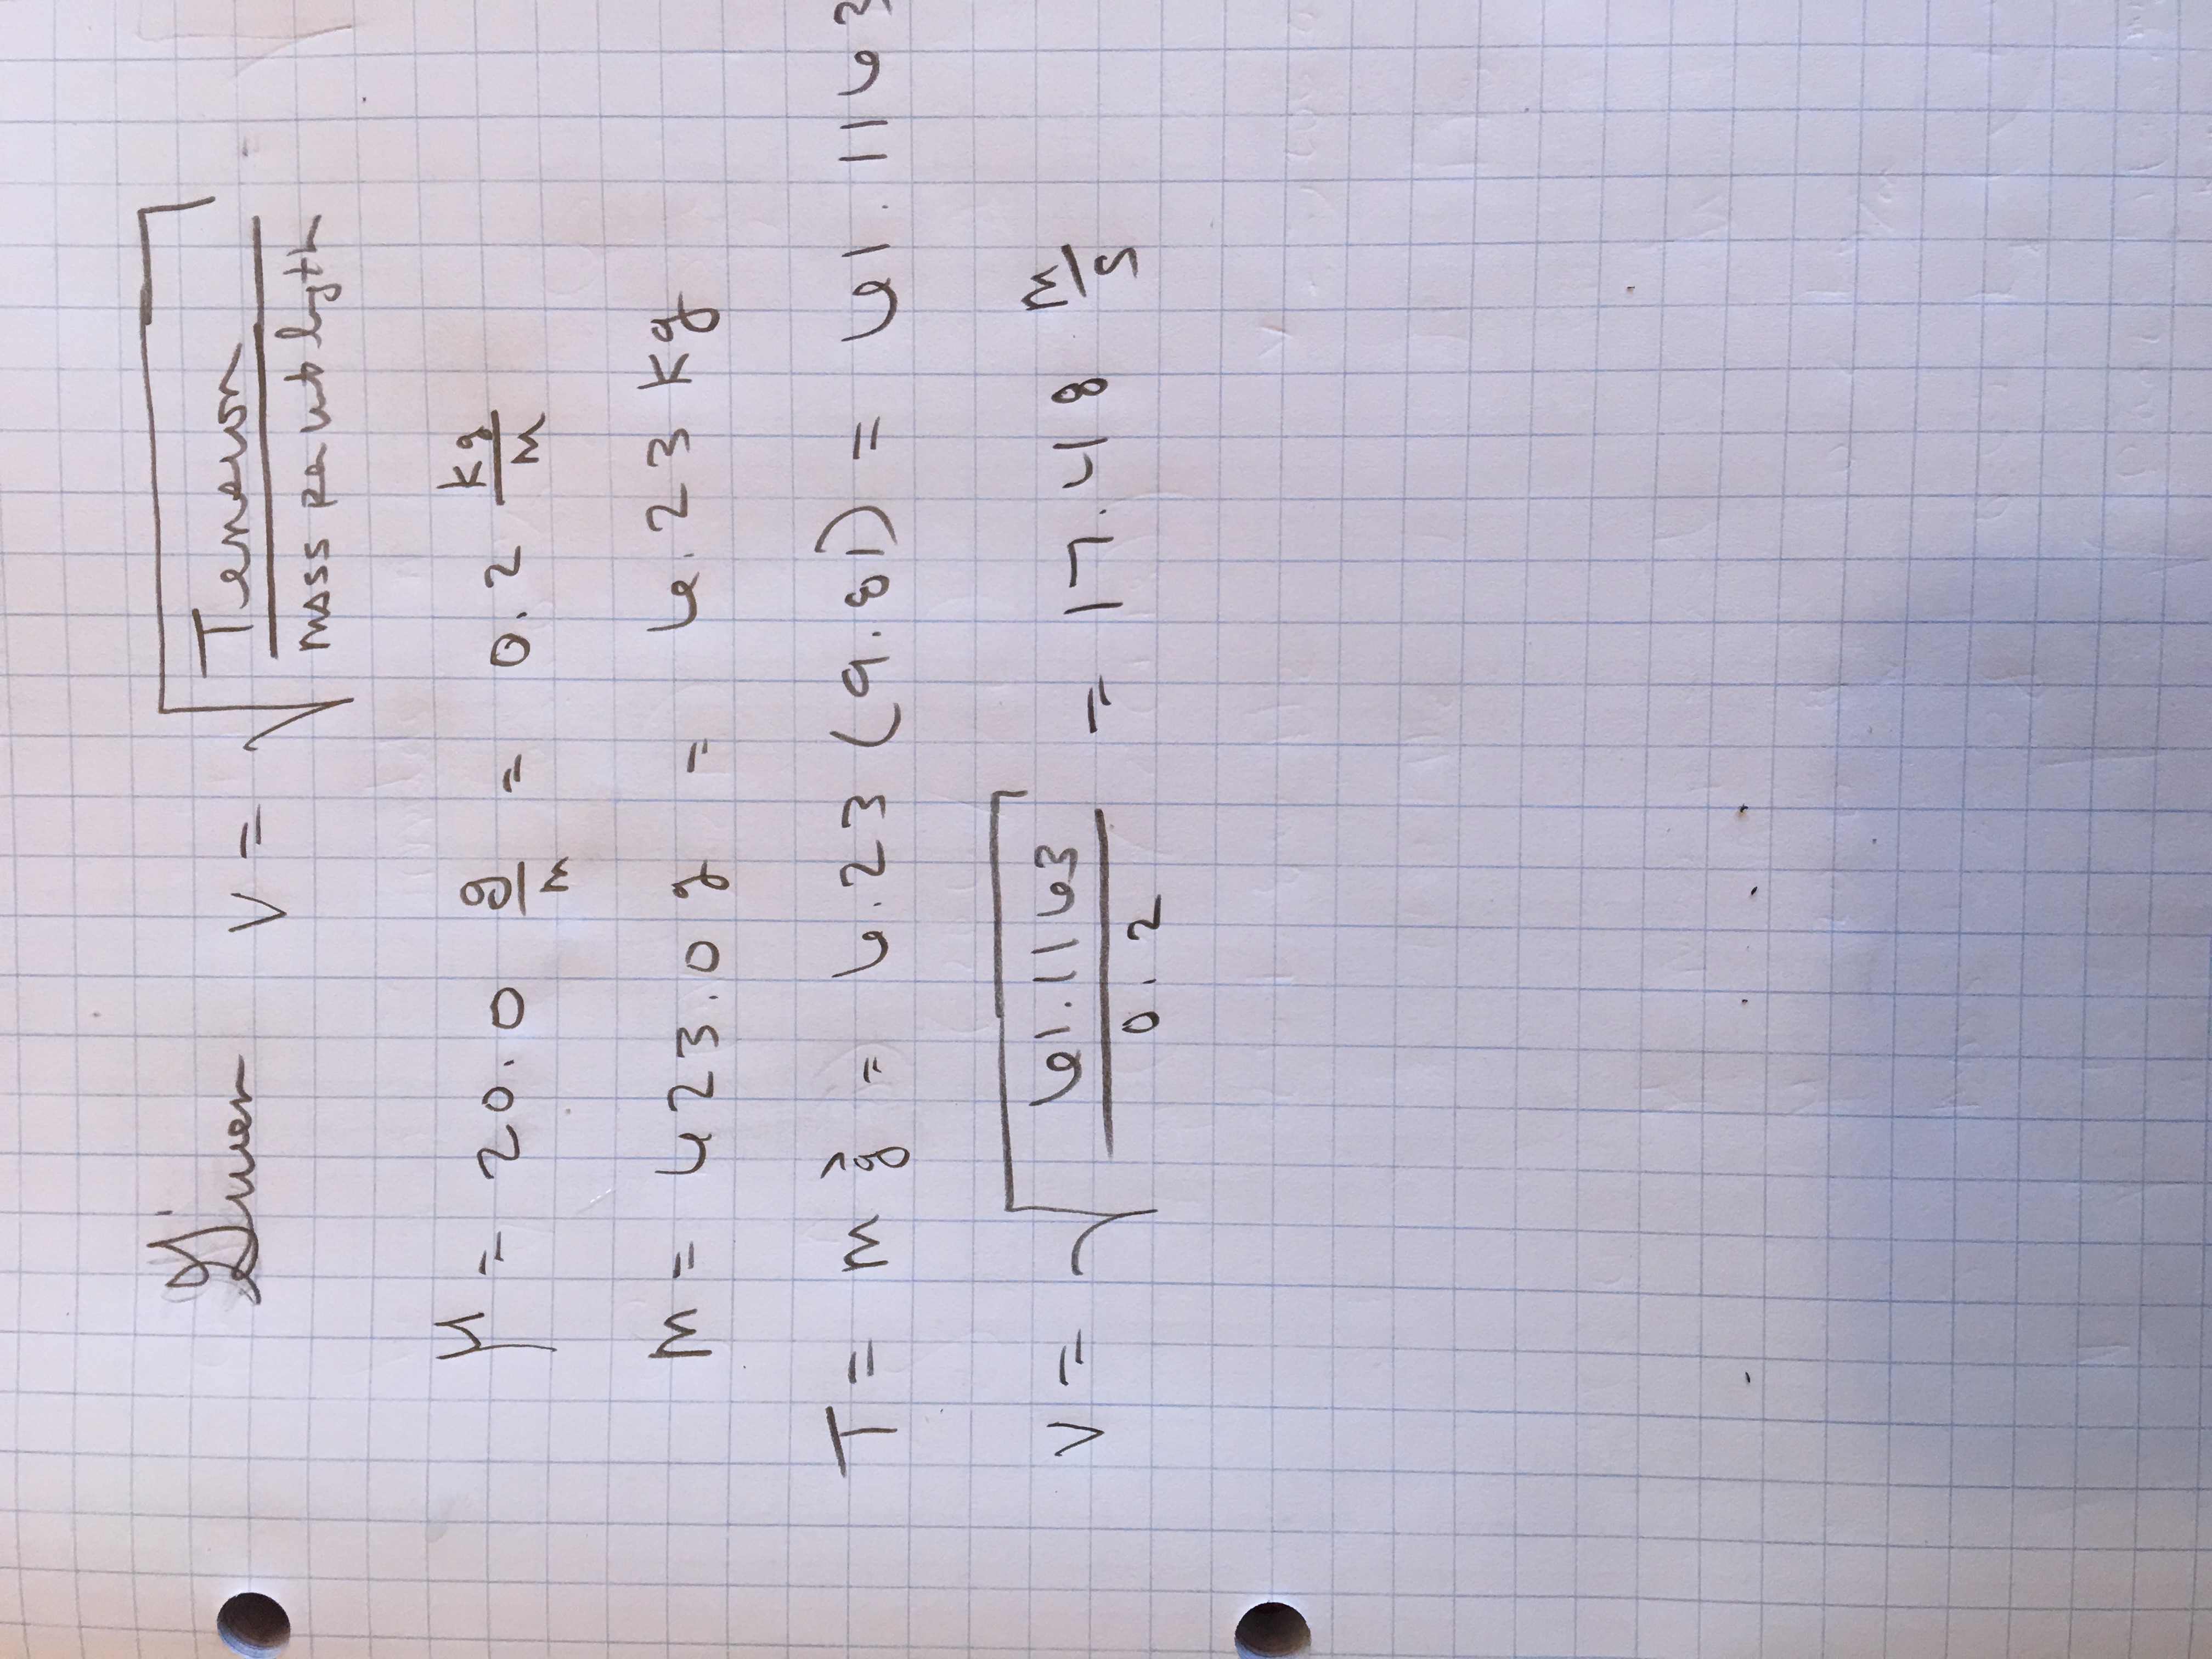 Given V = √(Tension / mass per unit length)
μ = 20.0 g/m = 0.2 kg/m
m = 623.0 g = 6.23 kg
T = m g⃗ = 6.23 (9.81) = 61.1163
V = √(61.1163 / 0.2) = 17.48 m/s